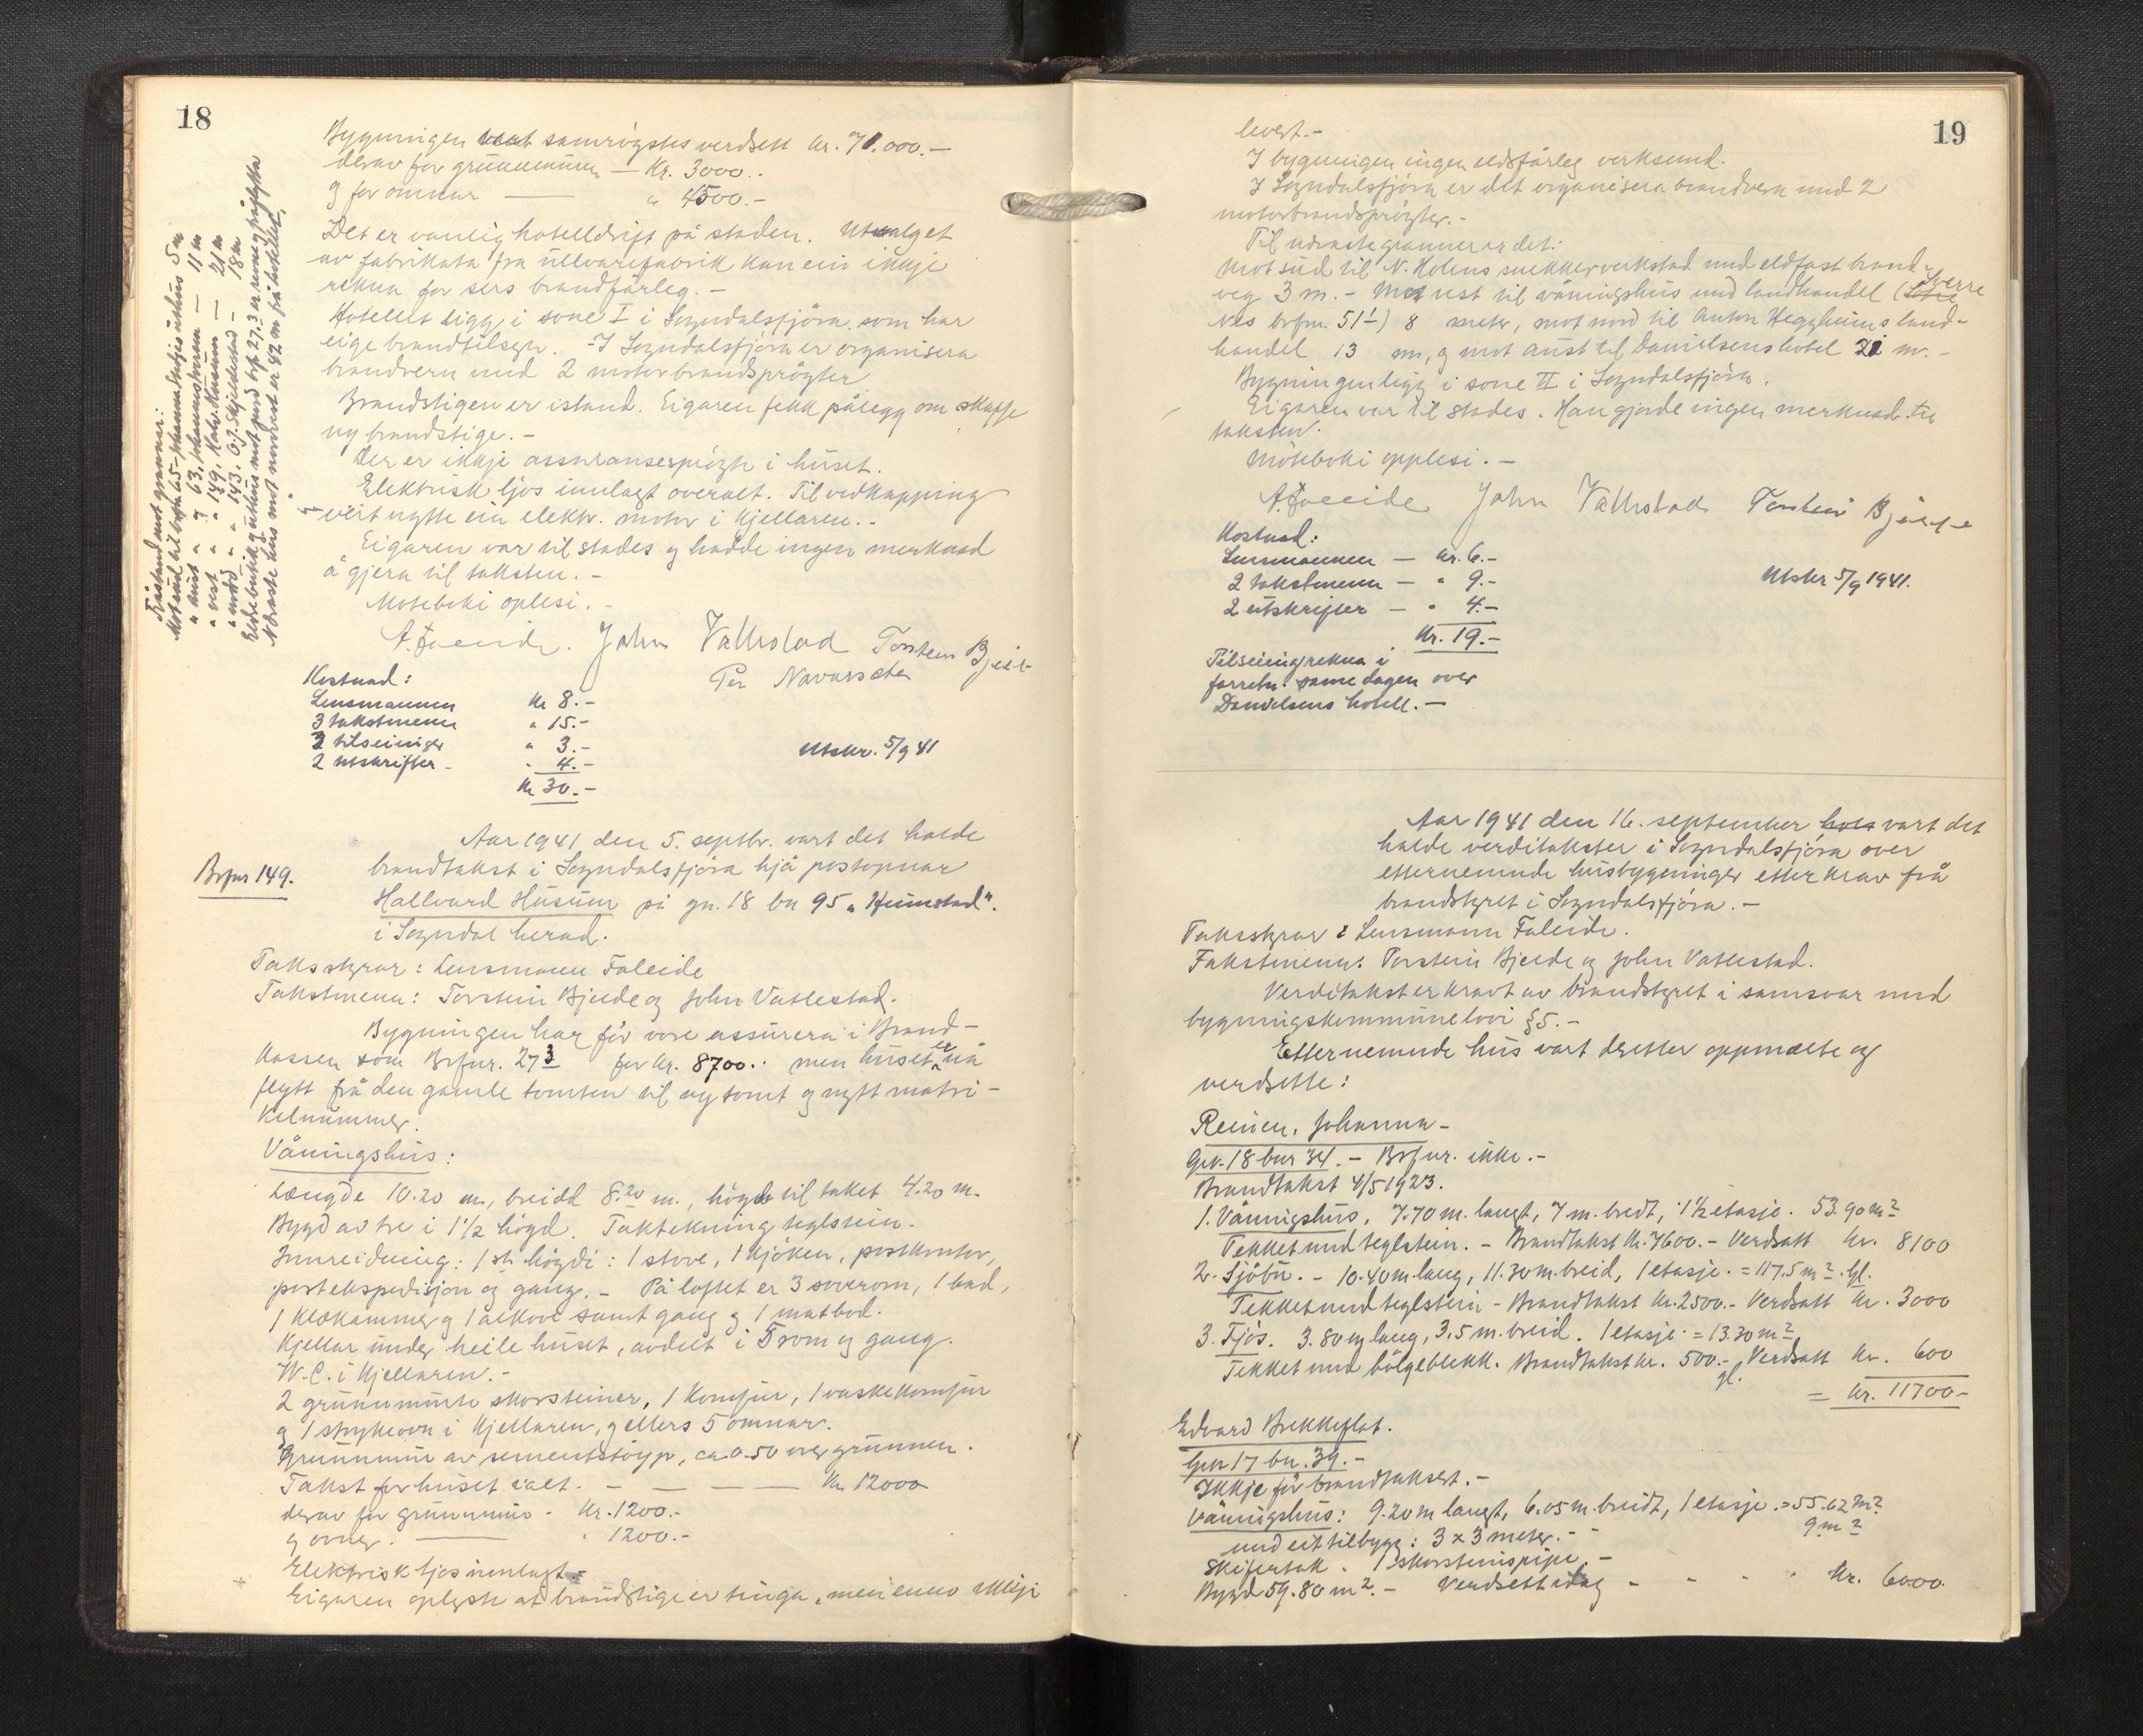 18
Bygningen vart samrøystes verdsett kr. 71.000.-
derav for grunnmuren — Kr. 3000.-
og for omnar — " 4500.-
Det er vanlig hotelldrift på staden. Utvalget
av fabrikata frå ullvarefabrik kan ein ikkje
rekna for sers brandfårleg.-
Hotellet ligg i sone I i Sogndalsfjøra som har
eige brandtilsegn. - I Sogndalsfjøra er organisera
brandvern med 2 motorbrandsprøyter
Brandstigen er istand. Eigaren fekk pålegg om skaffe
ny brandstige.-
Der er ikkje assuransesprøyte i huset.
Elektrisk ljos innlagt overalt. Til vedkapping
vert nytta ein elektr. motor i kjellaren.-
Eigaren var til stades og hadde ingen merknad
å gjera til taksten.-
Møteboki oplesi.-
A. Faleide. John Vatlestad Torstein Bjelde
Per Navarsete
Kostnad:
Lensmannen Kr 8.-
3 takstmenn " 15.-
2 tilseiingar " 3.-
2 utskrifter " 4.-
Kr 30.-
Utskr. 5/9 41
Avstand mot grannar:
Mot sud til brfn 65 - uthus 5 m
" aust " " 63, — 11 m
" vest " " 149, Halv. Husum — 21 m
" nord " " 143, O.J. Skjeldestad — 18 m
Aar 1941 den 5. septbr. vart det halde
brandtakst i Sogndalsfjøra hjå postopnar
Brfnr 149.
Hallvard Husum på gn. 18 bn 95 "Heimstad".
i Sogndal herad.
Taksstyrar: Lensmann Faleide
Takstmenn: Torstein Bjelde og John Vatlestad.
Bygningen har før vore assurera i Brand-
kassen som Brfnr. 273 for kr. 8700.- men huset er nå
flytt frå den gamle tomten til ny tomt og nytt matri-
kelnummer.
Våningshus:
Længde 10.20 m., breidd 8.20 m., høgde til taket 4.20 m.
Bygd av tre i 1½ høgd. Taktekning teglstein.
Innreidning: 1st høgdi: 1 stove, 1 kjøken, postkontor,
postekspedisjon og gang.- På loftet er 3 soverom, 1 bad,
1 klækammer og 1 alkove samt gang og 1 matbod.
Kjellar under heile huset, avdelt i 5 rom og gang.
W.C. i kjellaren.-
2 grunnmurte skorsteiner, 1 komfur, 1 vaskekomfur
og 1 strykeovn i kjellaren, og ellers 5 omnar.
Grunnmur av sementstøyp, ca. 0.50 over grunnen.
Takst for huset ialt. - — — — Kr 12000
derav for grunnmur - Kr. 1200.-
og ovner. — " 1200.-
Elektrisk ljos innlagt.-
Eigaren oplyste at brandstige er tinga, men enno ikkje
19
levert.-
I bygningen ingen eldsfårleg verksemd.
I Sogndalsfjøra er det organisera brandvern med 2
motorbrandsprøyter.-
Til næraste grannar er det:
Mot sud til N. Holens snekkerverkstad med eldfast brand-
veg 3 m.- Mot vest til våningshus med landhandel (Sverre
Nes brfnr. 51) 8 meter, mot nord til Anton Heggheims land-
handel 13 m, og mot aust til Danielsens hotel 21 m.-
Bygningen ligg i sone II i Sogndalsfjøra.
Eigaren var til stades. Han gjorde ingen merknad til
taksten.
Møteboki opplesi.-
A. Faleide John Vatlestad Torstein Bjelde
Kostnad:
Lensmannen — Kr. 6.-
2 takstmenn — " 9.-
2 utskrifter — " 4.-
Kr. 19.-
Utskr 5/9 1941.
Tilseiing rekna i
forretn. same dagen over
Danielsens hotell.-
Aar 1941 den 16. september vart det
halde verditakster i Sogndalsfjøra over
etternemnde husbygninger etter krav frå
brandstyret i Sogndalsfjøra.-
Taksstyrar: Lensmann Faleide.
Takstmenn: Torstein Bjelde og John Vatlestad.
Verditakst er kravt av brandstyret i samsvar med
bygningskommunelovi §5.-
Etternemnde hus vart deretter oppmælte og
verdsette:
Reinen, Johanna-
Gnr. 18 bnr 34. - Brfnr. ikke.-
Brandtakst 4/5 1923.
1. Våningshus, 7.70 m. langt, 7 m. bredt, 1½ etasje. 53.90 m²
Tekket med teglstein. - Brandtakst kr. 7600.- Verdsatt kr. 8100
2. Sjøbu. - 10.40 m lang, 11.30 m. breid, 1 etasje. = 117.5 m². gl.
Tekket med teglstein - Brandtakst kr. 2500.- Verdsatt kr. 3000
3. Fjøs. 3.80 m lang, 3.5 m. breid. 1 etasje = 13.30 m²
Tekket med bølgeblekk. Brandtakst kr. 500.- Verdsatt kr. 600
gl.
= kr. 11700-
Edvard Bekkeflat.
Gnr 17 bn. 39.-
Ikkje før brandtaksert.-
Våningshus: 9.20 m langt, 6.05 m. breidt, 1 etasje. = 55.62 m²
med eit tilbygg: 3 x 3 meter.- 9 m²
Skifertak. 1 skorsteinspipe.-
Bygd 59.80 m².- Verdsett idag - - - kr. 6000.